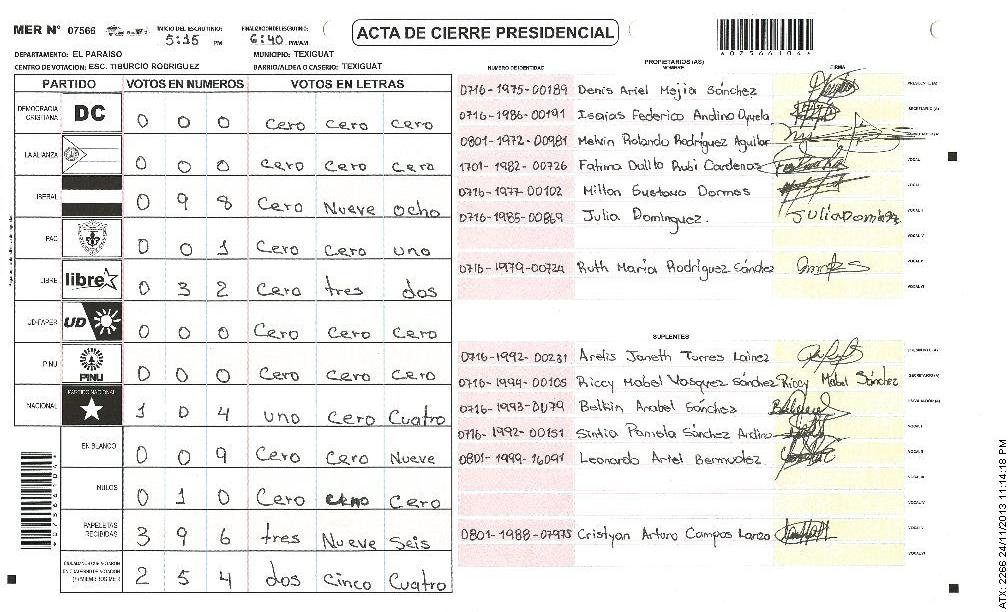 MER N° 07566 INICIO DEL ESCRUTINIO: 5:15 PM FINALIZACION DE ESCRUTINIO: 6:40 PM/AM
ACTA DE CIERRE PRESIDENCIAL
DEPARTAMENTO: EL PARAISO MUNICIPIO: TEXIGUAT
CENTRO DE VOTACION: ESC. TIBURCIO RODRIGUEZ BARRIO/ALDEA O CASERIO: TEXIGUAT
PARTIDO VOTOS EN NUMEROS VOTOS EN LETRAS
DEMOCRACIA CRISTIANA DC 0 0 0 Cero Cero Cero
LA ALIANZA 0 0 0 Cero Cero Cero
LIBERAL 0 9 8 Cero Nueve ocho
PAC 0 0 1 Cero Cero uno
LIBRE libre 0 3 2 Cero tres dos
UD-FAPER UD 0 0 0 Cero Cero Cero
PINU PINU 0 0 0 Cero Cero Cero
NACIONAL PARTIDO NACIONAL 1 0 4 uno Cero Cuatro
EN BLANCO 0 0 9 Cero Cero Nueve
NULOS 0 1 0 Cero Cero
PAPELETAS RECIBIDAS 3 9 6 tres Nueve Seis
2 5 4 dos Cinco Cuatro
PROPIETARIOS (AS)
NUMERO DE IDENTIDAD NOMBRE FIRMA
0716-1975-00189 Denis Ariel Mejia Sánchez
0716-1986-00191 Isaías Federico Andino Oyuela
0801-1972-00981 Melvin Rolando Rodríguez Aguilar
1701-1982-00726 Fatima Dalila Rubi Cardenas
0716-1977-00102 Millon Gustavo Dormos
0716-1985-00869 Julia Domínguez. Julia Domíngz
0716-1979-00724 Ruth María Rodríguez Sández
SUPLENTES
0716-1992-00231 Arelis Janeth Torres Lainez
0716-1994-00105 Riccy Mabel Vasquez Sández Riccy Mabel Sánchez
0716-1993-0079 Belkin Anabel Sánchez
0716-1992-00151 Sintia Pamela Sánchez Andino
0801-1999-16091 Leonardo Ariel Bermudez
0801-1988-07975 Cristyan Arturo Campos Lanzo
* 0 7 5 6 6 1 0 4 *
ATX: 2266 24/11/2013 11:14:18 PM